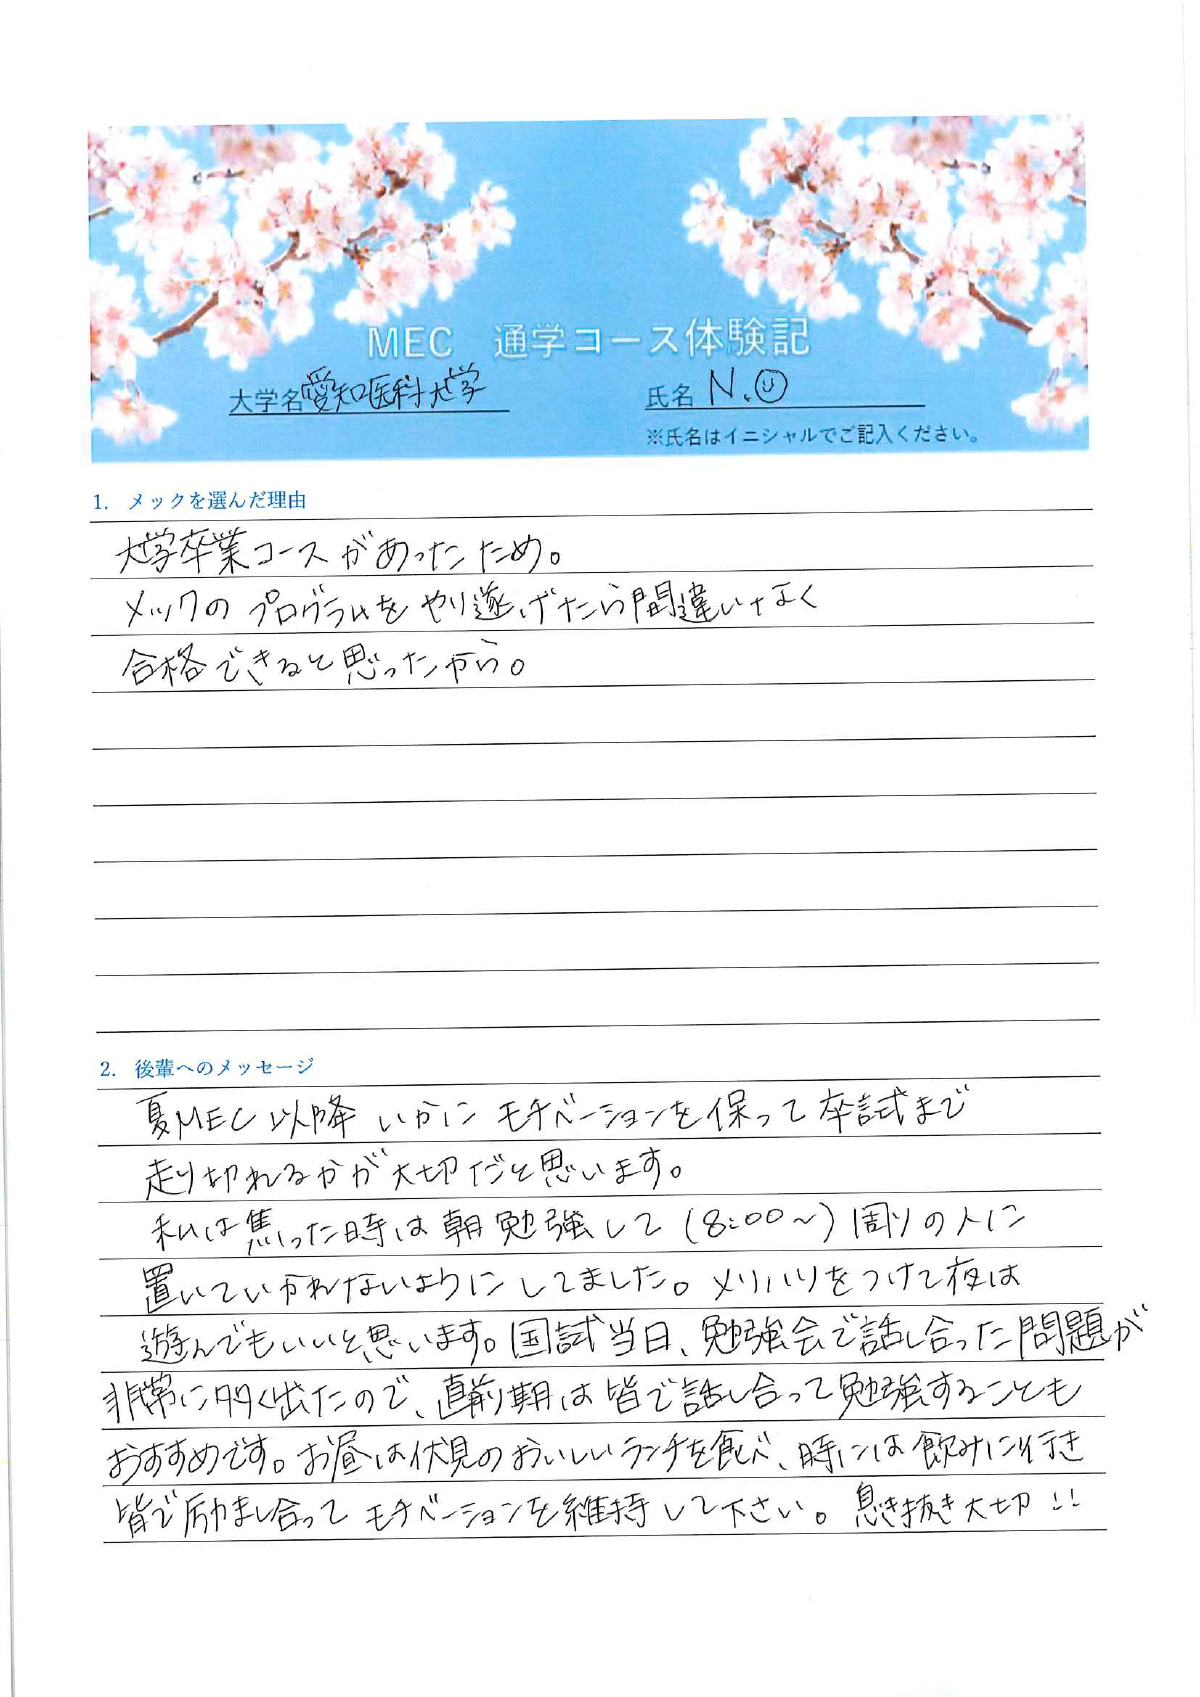 MEC 通学コース体験記
大学名 愛知医科大学 氏名 N.O
※氏名はイニシャルでご記入ください。
1. メックを選んだ理由
大学卒業コースがあったため。
メックのプログラムをやり遂げたら間違いなく
合格できると思ったから。
2. 後輩へのメッセージ
夏MEC以降 いかにモチベーションを保って卒試まで
走り切れるかが大切だと思います。
私は焦った時は朝勉強して(8:00~)周りの人に
置いていかれないようにしてました。メリハリをつけて夜は
遊んでもいいと思います。国試当日、勉強会で話し合った問題が
非常に多く出たので、直前期は皆で話し合って勉強することも
おすすめです。お昼は伏見のおいしいランチを食べ、時には飲みに行き
皆で励まし合ってモチベーションを維持して下さい。息き抜き大切!!